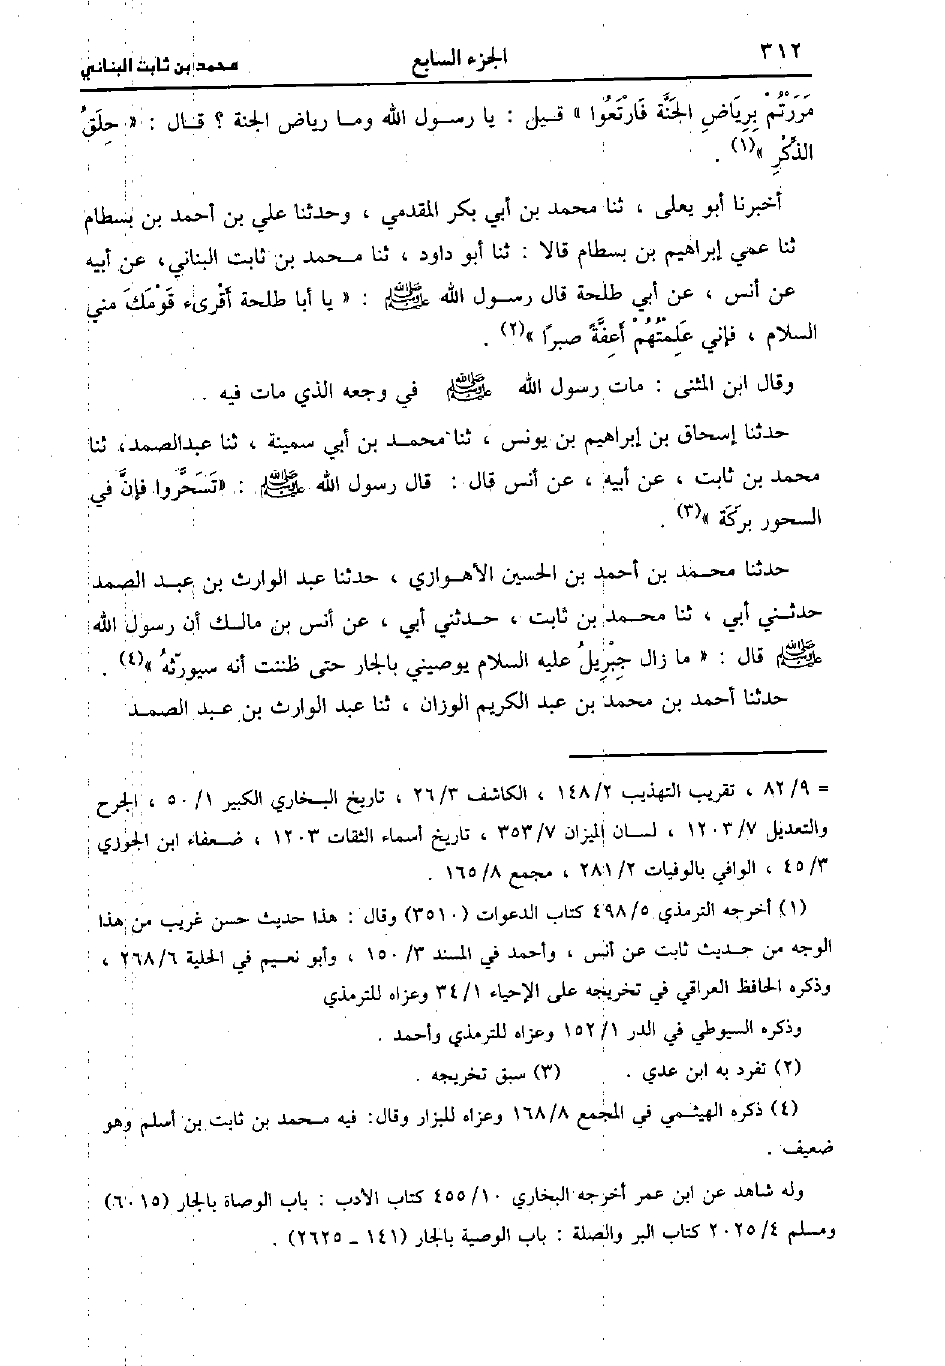 ٣١٢ الجزء السابع محمد بن ثابت البناني
مَرَرْتُمْ بِرِيَاضِ الجَنَّة فَارْتَعُوا » قيل : يا رسول الله وما رياض الجنة ؟ قال : « حِلَقُ
الذِّكْرِ »(١) .
أخبرنا أبو يعلى ، ثنا محمد بن أبي بكر المقدمي ، وحدثنا علي بن أحمد بن بسطام
ثنا عمي إبراهيم بن بسطام قالا : ثنا أبو داود ، ثنا محمد بن ثابت البناني، عن أبيه
عن أنس ، عن أبي طلحة قال رسول الله ﷺ : « يا أبا طلحة أَقْرِىء قَوْمَكَ مني
السلام ، فإني عَلِمْتُهُمْ أَعِفَّةً صبرًا »(٢) .
وقال ابن المثنى : مات رسول الله ﷺ في وجعه الذي مات فيه .
حدثنا إسحاق بن إبراهيم بن يونس ، ثنا محمد بن أبي سمينة ، ثنا عبدالصمد، ثنا
محمد بن ثابت ، عن أبيه ، عن أنس قال : قال رسول الله ﷺ : «تَسَحَّروا فإنَّ في
السحور بركَة »(٣) .
حدثنا محمد بن أحمد بن الحسين الأهوازي ، حدثنا عبد الوارث بن عبد الصمد
حدثني أبي ، ثنا محمد بن ثابت ، حدثني أبي ، عن أنس بن مالك أن رسول الله
ﷺ قال : « ما زال جِبْرِيلُ عليه السلام يوصيني بالجار حتى ظننت أنه سيورّثهُ »(٤) .
حدثنا أحمد بن محمد بن عبد الكريم الوزان ، ثنا عبد الوارث بن عبد الصمد
= ٨٢/٩ ، تقريب التهذيب ١٤٨/٢ ، الكاشف ٢٦/٣ ، تاريخ البخاري الكبير ٥٠/١ ، الجرح
والتعديل ١٢٠٣/٧ ، لسان الميزان ٣٥٣/٧ ، تاريخ أسماء الثقات ١٢٠٣ ، ضعفاء ابن الجوزي
٤٥/٣ ، الوافي بالوفيات ٢٨١/٢ ، مجمع ١٦٥/٨ .
(١) أخرجه الترمذي ٤٩٨/٥ كتاب الدعوات (٣٥١٠) وقال : هذا حديث حسن غريب من هذا
الوجه من حديث ثابت عن أنس ، وأحمد في المسند ١٥٠/٣ ، وأبو نعيم في الحلية ٢٦٨/٦ ،
وذكره الحافظ العراقي في تخريجه على الإحياء ٣٤/١ وعزاه للترمذي
وذكره السيوطي في الدر ١٥٢/١ وعزاه للترمذي وأحمد .
(٢) تفرد به ابن عدي . (٣) سبق تخريجه .
(٤) ذكره الهيثمي في المجمع ١٦٨/٨ وعزاه للبزار وقال: فيه محمد بن ثابت بن أسلم وهو
ضعيف .
وله شاهد عن ابن عمر أخرجه البخاري ٤٥٥/١٠ كتاب الأدب : باب الوصاة بالجار (٦٠١٥)
ومسلم ٢٠٢٥/٤ كتاب البر والصلة : باب الوصية بالجار (١٤١ ـ ٢٦٢٥) .